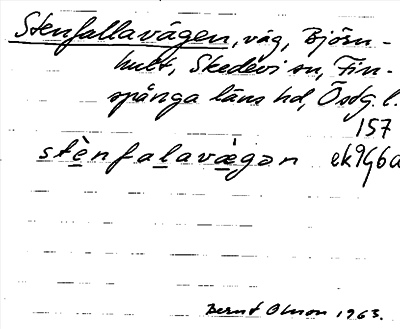 Stenfallavägen, väg, Björn-
hult, Skedevi sn, Fin-
spånga läns hd, Östg. l.
157
stènfalavä̀gən ek 9G6a
Bernt Olsson 1963.